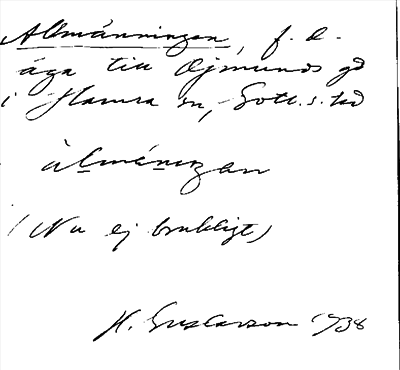 Allmänningen, f. d.
äga till Ojmunds gd
i Hamra sn, Gotl. s. tad
àlmánıŋan
(Nu ej brukligt)
H. Gustavson 1938